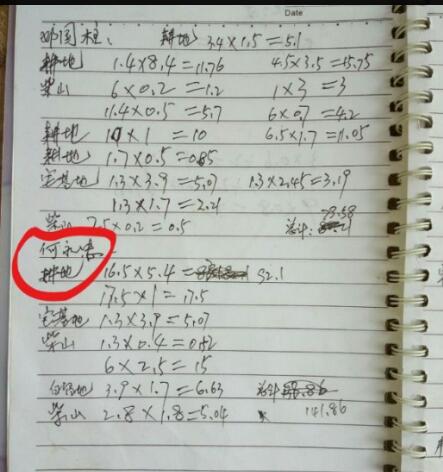 Date
邓国柱、 耕地 3.4×1.5=5.1
耕地 1.4×8.4=11.76 4.5×3.5=15.75
柴山 6×0.2=1.2 1×3=3
11.4×0.5=5.7 6×0.7=4.2
耕地 10×1=10 6.5×1.7=11.05
耕地 1.7×0.5=0.85
宅基地 1.3×3.9=5.07 1.3×2.45=3.19
1.3×1.7=2.21
柴山 2.5×0.2=0.5 总计: 79.58
何
耕地 16.5×5.4= 92.1
17.5×1=17.5
宅基地 1.3×3.9=5.07
柴山 1.3×0.4=0.52
6×2.5=15
自留地 3.9×1.7=6.63 总计
柴山 2.8×1.8=5.04 141.86